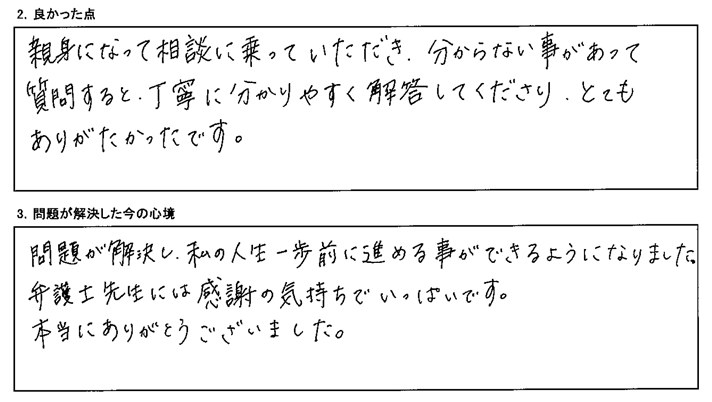 2. 良かった点
親身になって相談に乗っていただき、分からない事があって
質問すると、丁寧に分かりやすく解答してくださり、とても
ありがたかったです。
3. 問題が解決した今の心境
問題が解決し、私の人生一歩前に進める事ができるようになりました。
弁護士先生には感謝の気持ちでいっぱいです。
本当にありがとうございました。